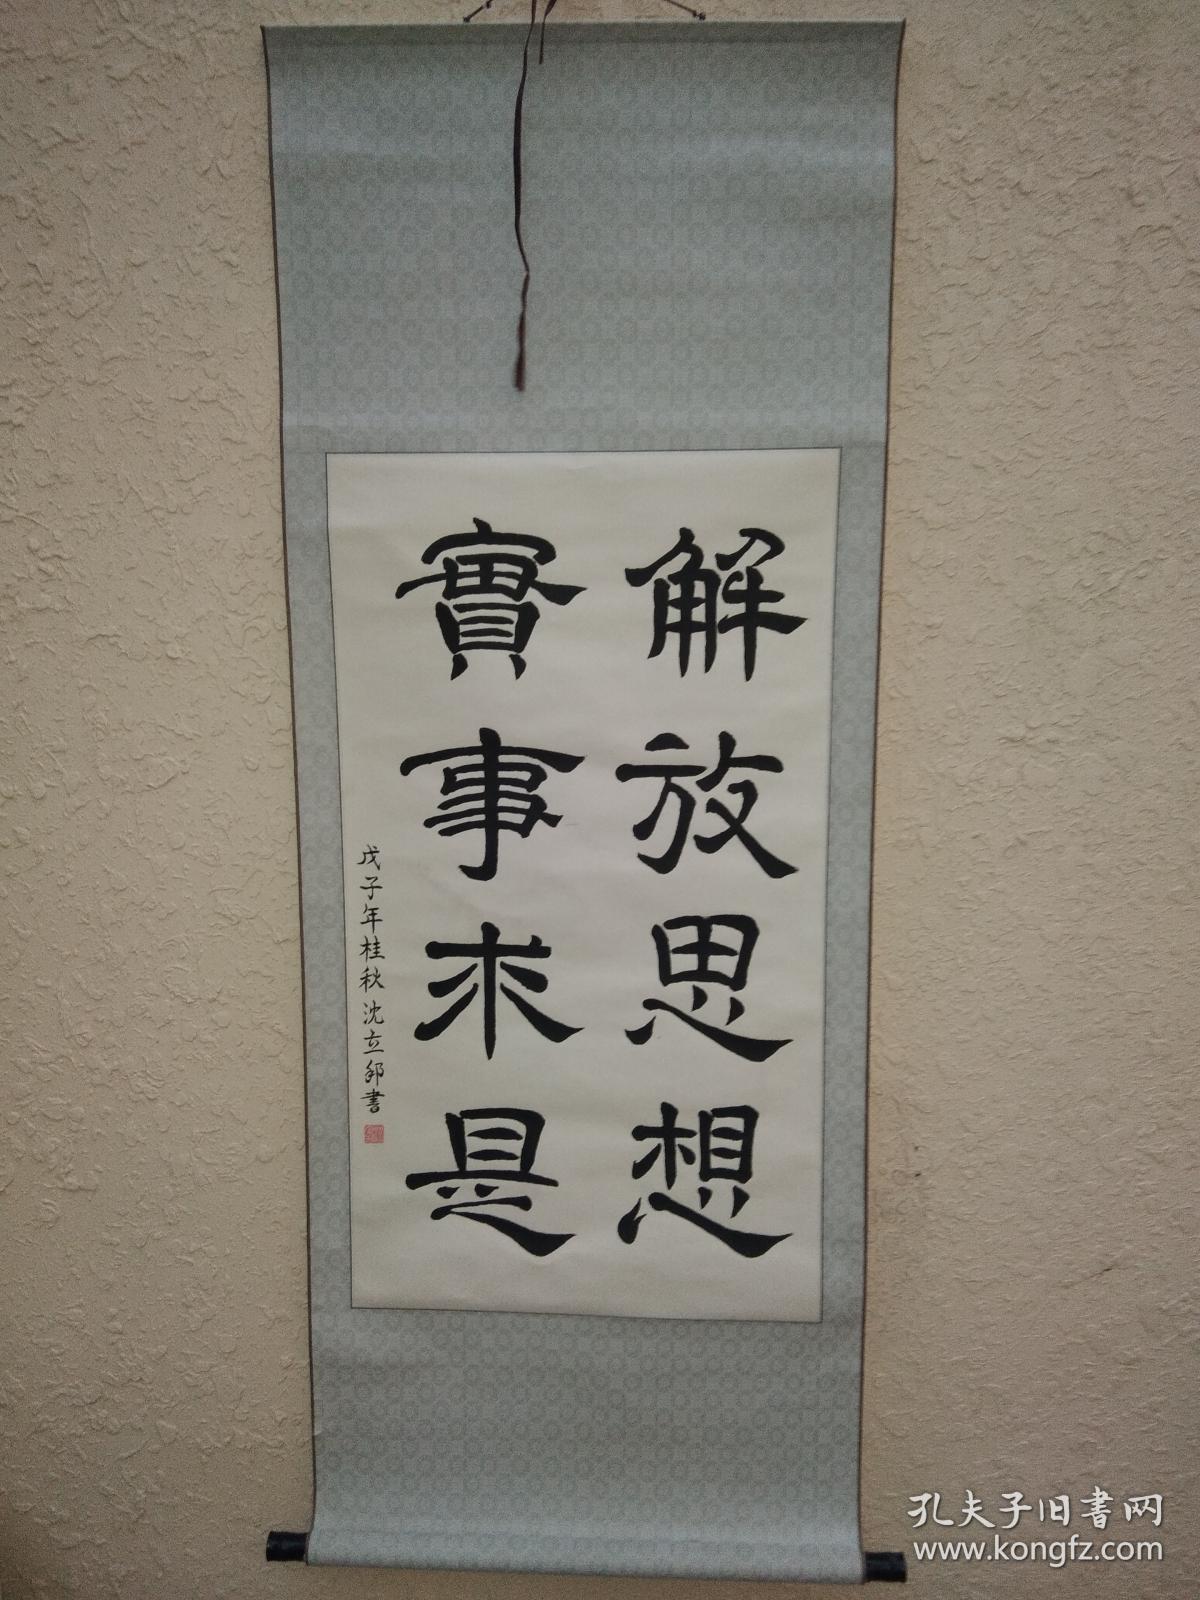 解放思想
實事求是
戊子年桂秋沈立邨書
孔夫子旧書网
www.kongfz.com